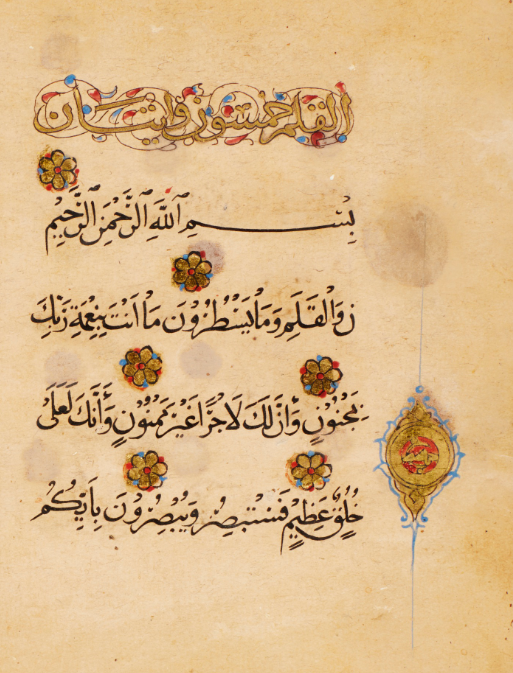 القلم خمسون واثنتان
بِسْمِ اللَّهِ الرَّحْمَنِ الرَّحِيْمِ
ن وَالْقَلَمِ وَمَا يَسْطُرُوْنَ مَا أَنْتَ بِنِعْمَةِ رَبِّكَ
بِمَجْنُوْنٍ وَأِنَّ لَكَ لَأَجْرًا غَيْرَ مَمْنُوْنٍ وَأِنَّكَ لَعَلَىٰ
خُلُقٍ عَظِيْمٍ فَسَتُبْصِرُ وَيُبْصِرُوْنَ بِأَيِّكُمُ